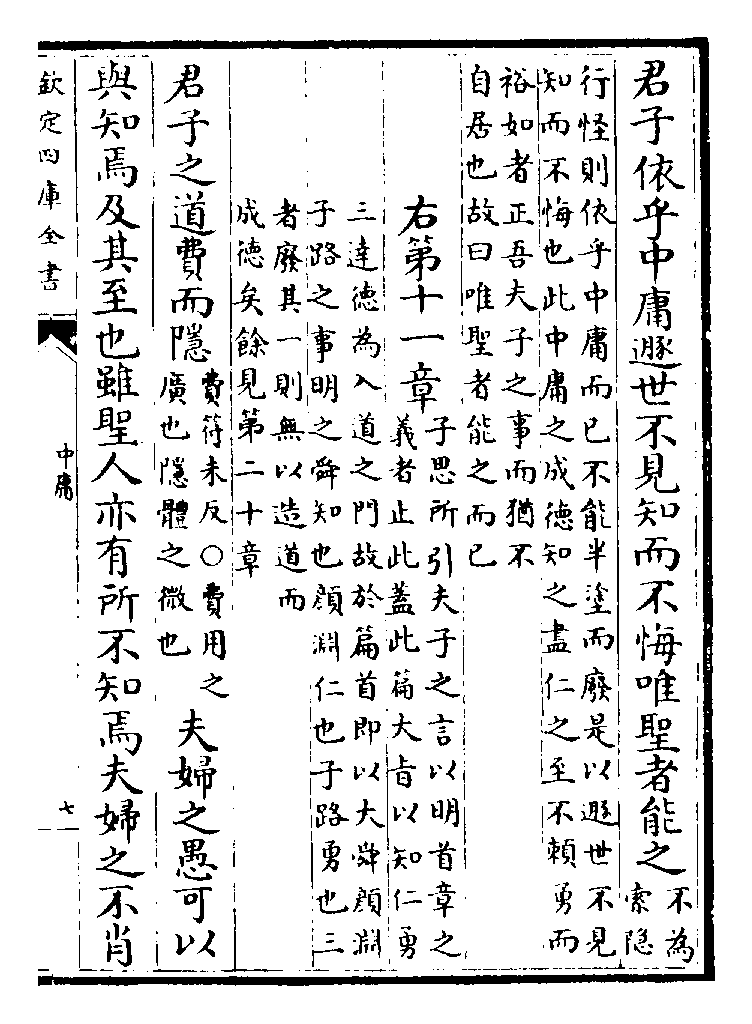 君子依乎中庸遯世不見知而不悔唯聖者能之不為
索隐
行怪則依乎中庸而已不能半塗而廢是以遯世不見
知而不悔也此中庸之成德知之盡仁之至不賴勇而
裕如者正吾夫子之事而猶不
自居也故曰唯聖者能之而已
右第十一章子思所引夫子之言以明首章之
義者止此蓋此篇大旨以知仁勇
三達德為入道之門故於篇首即以大舜顔淵
子路之事明之舜知也顔淵仁也子路勇也三
者廢其一則無以造道而
成德矣餘見第二十章
君子之道費而隱費符未反○費用之
廣也隱體之微也
夫婦之愚可以
與知焉及其至也雖聖人亦有所不知焉夫婦之不肖
欽定四庫全書
中庸
七